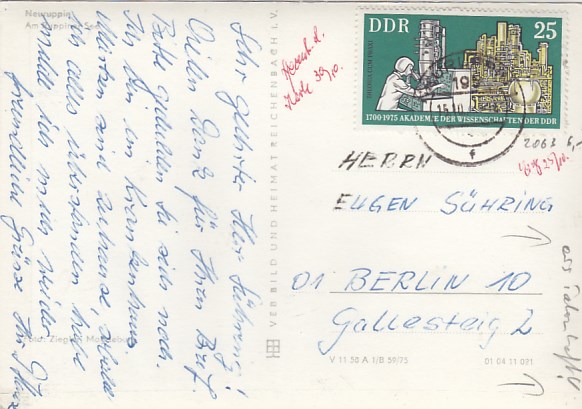 Neuruppin
Am Ruppiner See
Sehr geehrter Herr Sühring!
Vielen Dank für Ihren Brief.
Bitte gedulden Sie sich noch.
Ich bin im Krankenhaus.
Werden sie zuhause, sobald
ich alles überstanden habe
melde ich mich wieder.
Freundliche Grüße Ihr
Foto: Ziegler, Magdeburg
VEB BILD UND HEIMAT REICHENBACH i. V.
Karte 30/10.
DDR 25
1700/1975 AKADEMIE DER WISSENSCHAFTEN DER DDR
15.10.
f
2063 6,-
25/10.
HERRN
EUGEN SÜHRING
01 BERLIN 10
Gallesteig 2
V 11 50 A 1/B 59/75
01 04 11 021